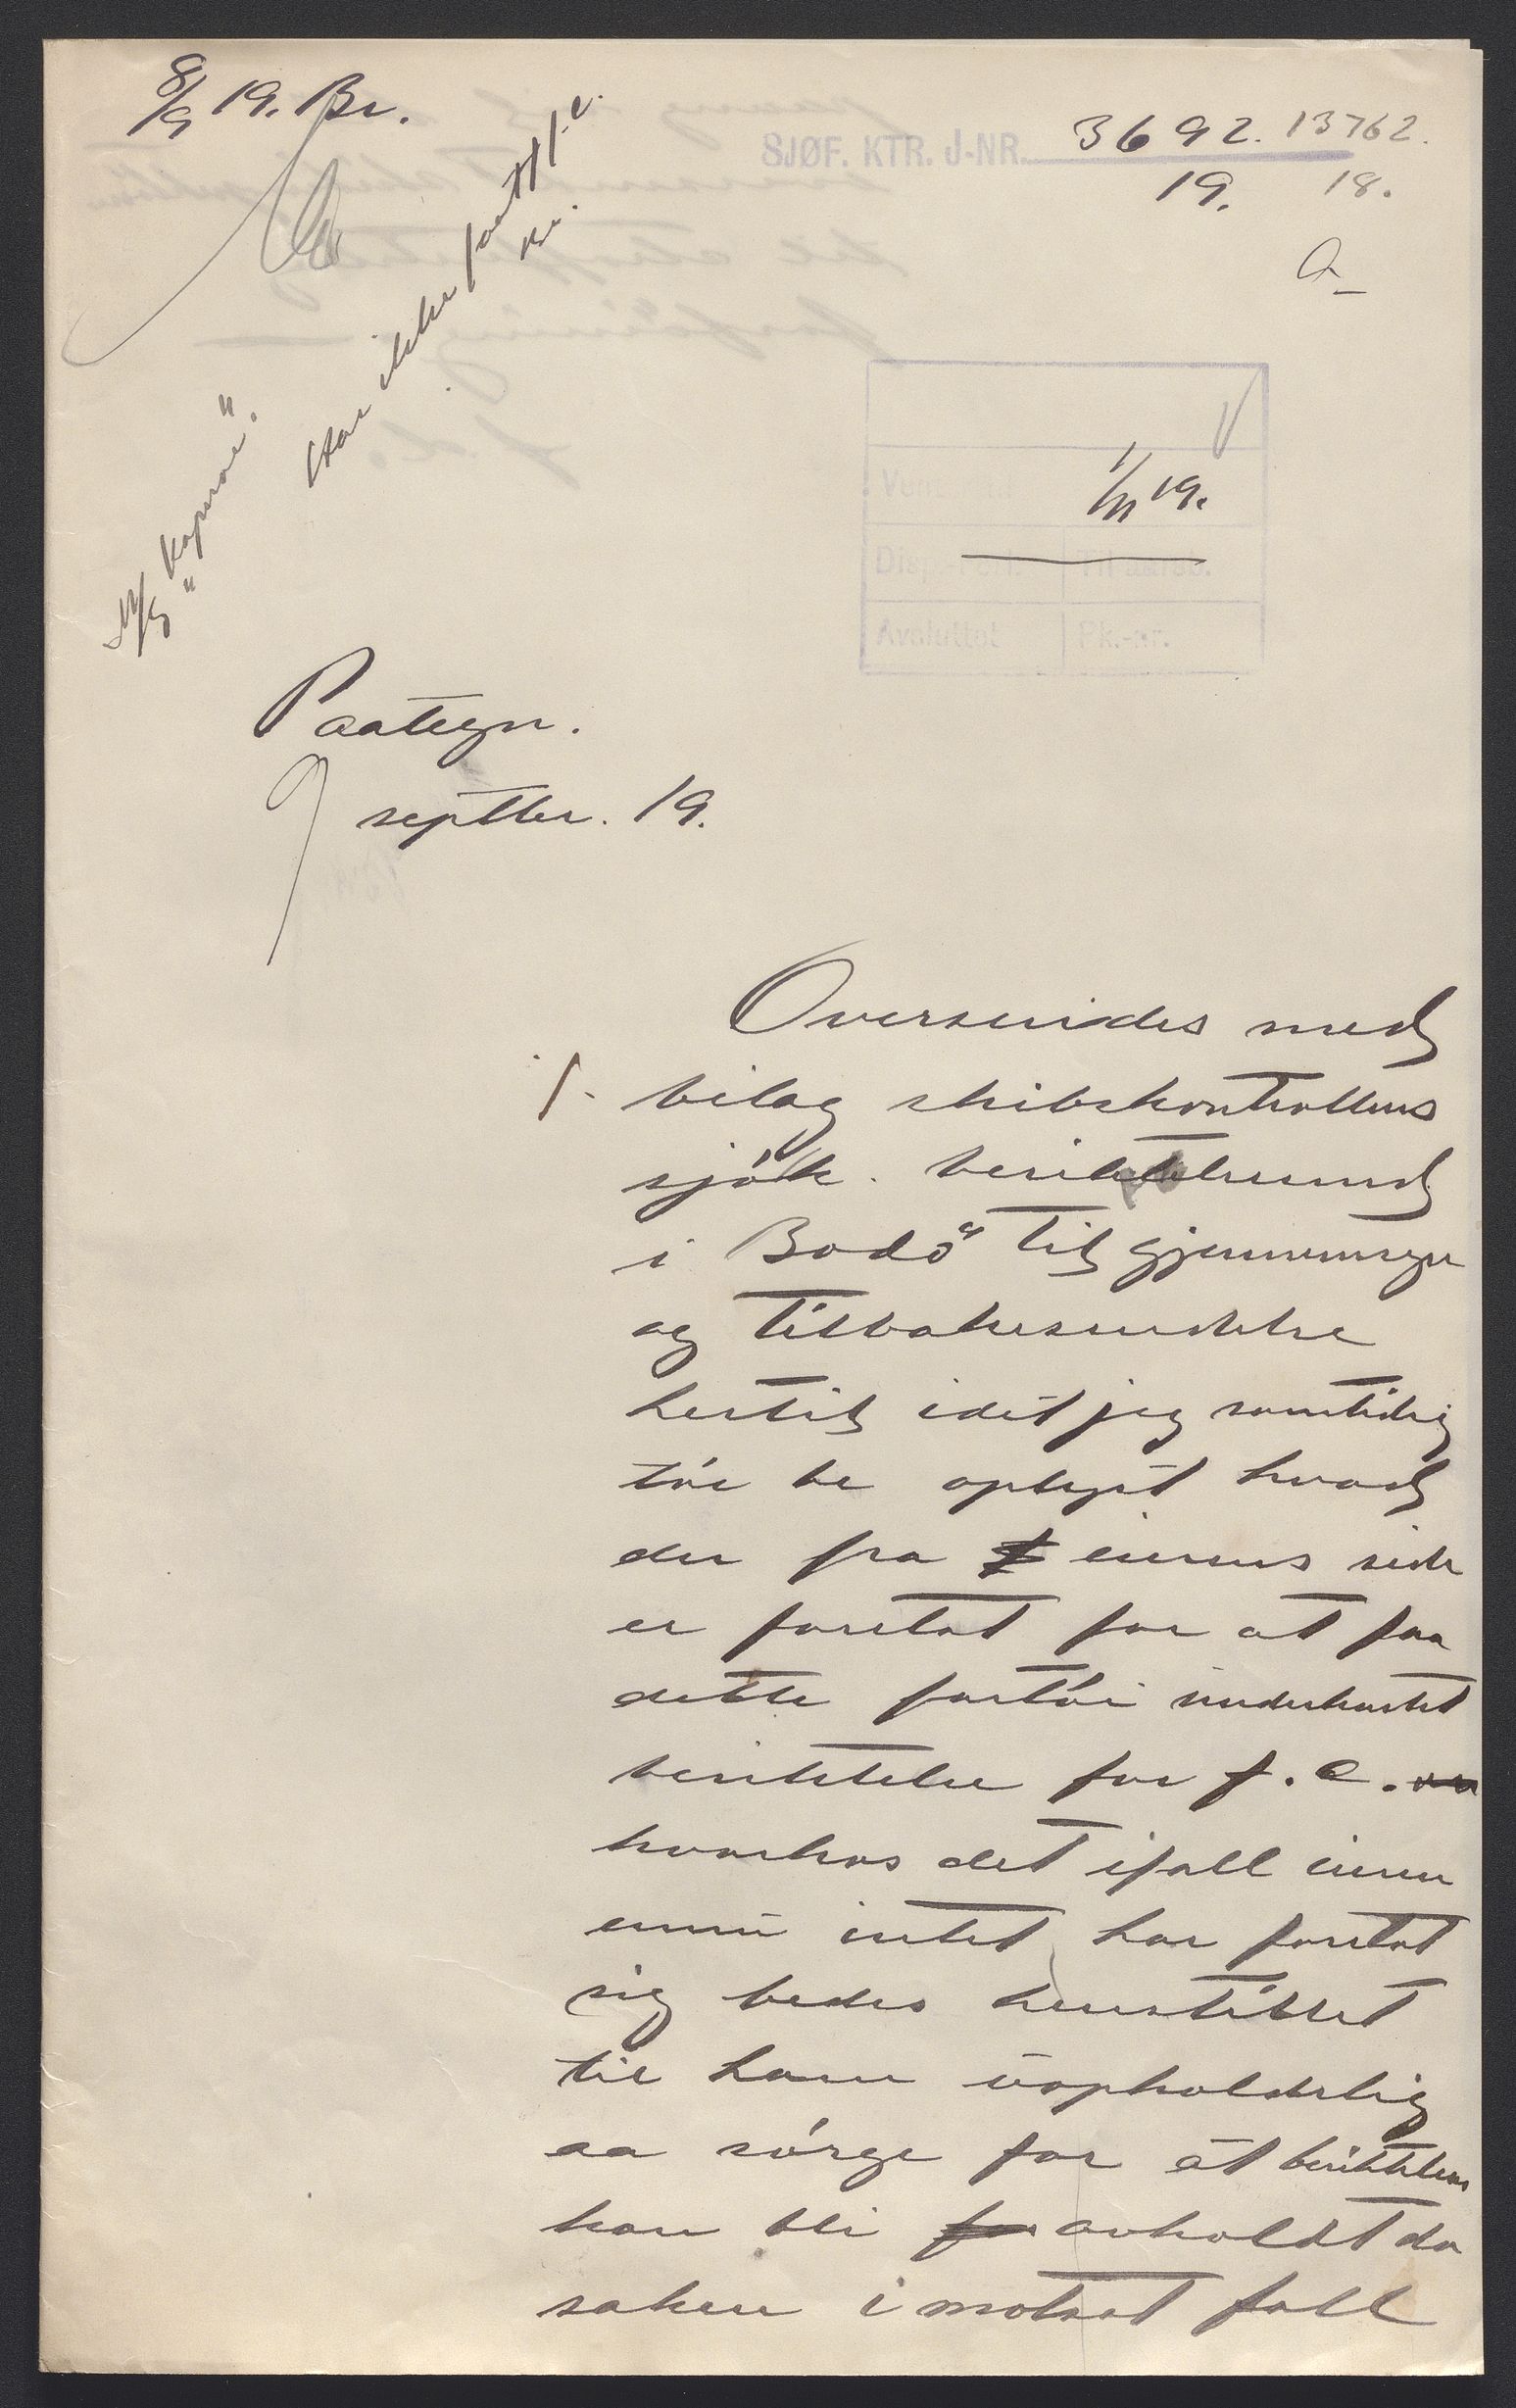 8/9 19. Br.
SJØF. KTR. J-NR. 3692. 13762.
19. 18.
Har ikke faat f.c.
Br.
M/S "Kapnor".
1/11 19.
Disp.-
Avsluttet Pk.-nr.
Paategn.
9 septbr. 19.
Oversendes med
·/. bilag skibskontrollens
sjök. besiktelsesmd
i Bodö til gjennemsyn
og tilbakesendelse
hertil idet jeg samtidig
tör be oplyst hvad
der fra eierens side
er foretat for at faa
dette fartöi underkastet
besiktelse for f.c.
hvorhos det ifall eieren
ennu intet har foretat
sig bedes henstillet
til ham uopholdelig
aa sörge for at besiktelsen
kan bli avholdt da
saken i motsat fall